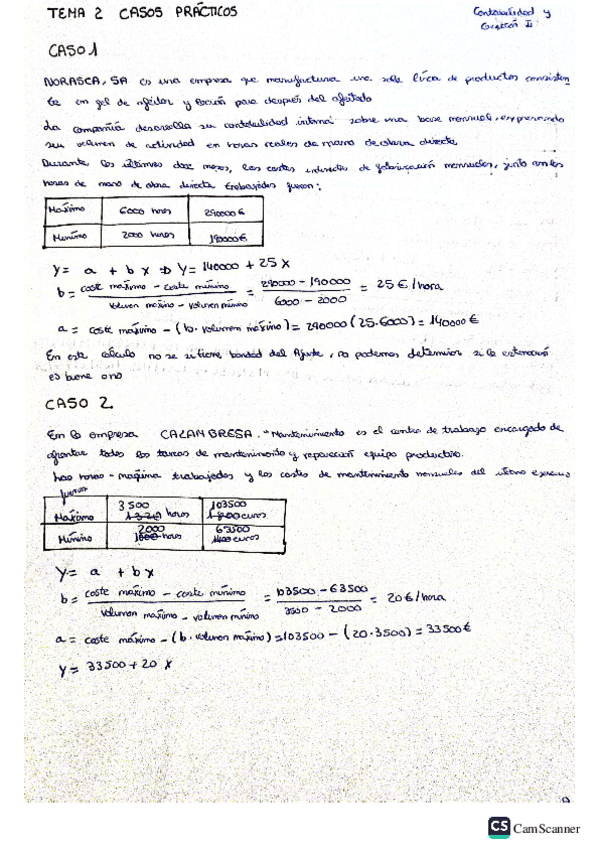 TEMA 2 CASOS PRÁCTICOS
Contabilidad y
Gestión II
CASO 1
NORASCA, SA es una empresa que manufactura una sola línea de productos consisten
te en gel de afeitar y loción para después del afeitado
La compañía desarrolla su contabilidad interna sobre una base mensual, expresando
su volumen de actividad en horas reales de mano de obra directa.
Durante los últimos doce meses, los costes indirectos de fabricación mensuales, junto con las
horas de mano de obra directa trabajadas fueron:
Máximo 6000 horas 290000€
Mínimo 2000 horas 190000€
y = a + b x ⇒ Y = 140000 + 25 X
b = coste máximo - coste mínimo / volumen máximo - volumen mínimo = 290000 - 190000 / 6000 - 2000 = 25 €/hora
a = coste máximo - (b · volumen máximo) = 290000 (25·6000) = 140000 €
En este cálculo no se tiene bondad del Ajuste, no podemos determinar si la estimación
es buena o no
CASO 2
En la empresa CALAMBRESA. "Mantenimiento es el centro de trabajo encargado de
afrontar todos las tareas de mantenimiento y reparación equipo productivo.
Las horas-máquina trabajadas y los costes de mantenimiento mensuales del último
fueron
Máximo 3500 horas 103500 euros
Mínimo 2000 horas 63500 euros
y = a + b x
b = coste máximo - coste mínimo / volumen máximo - volumen mínimo = 103500 - 63500 / 3500 - 2000 = 20 €/hora
a = coste máximo - (b · volumen máximo) = 103500 - (20·3500) = 33500 €
y = 33500 + 20 x
CS CamScanner